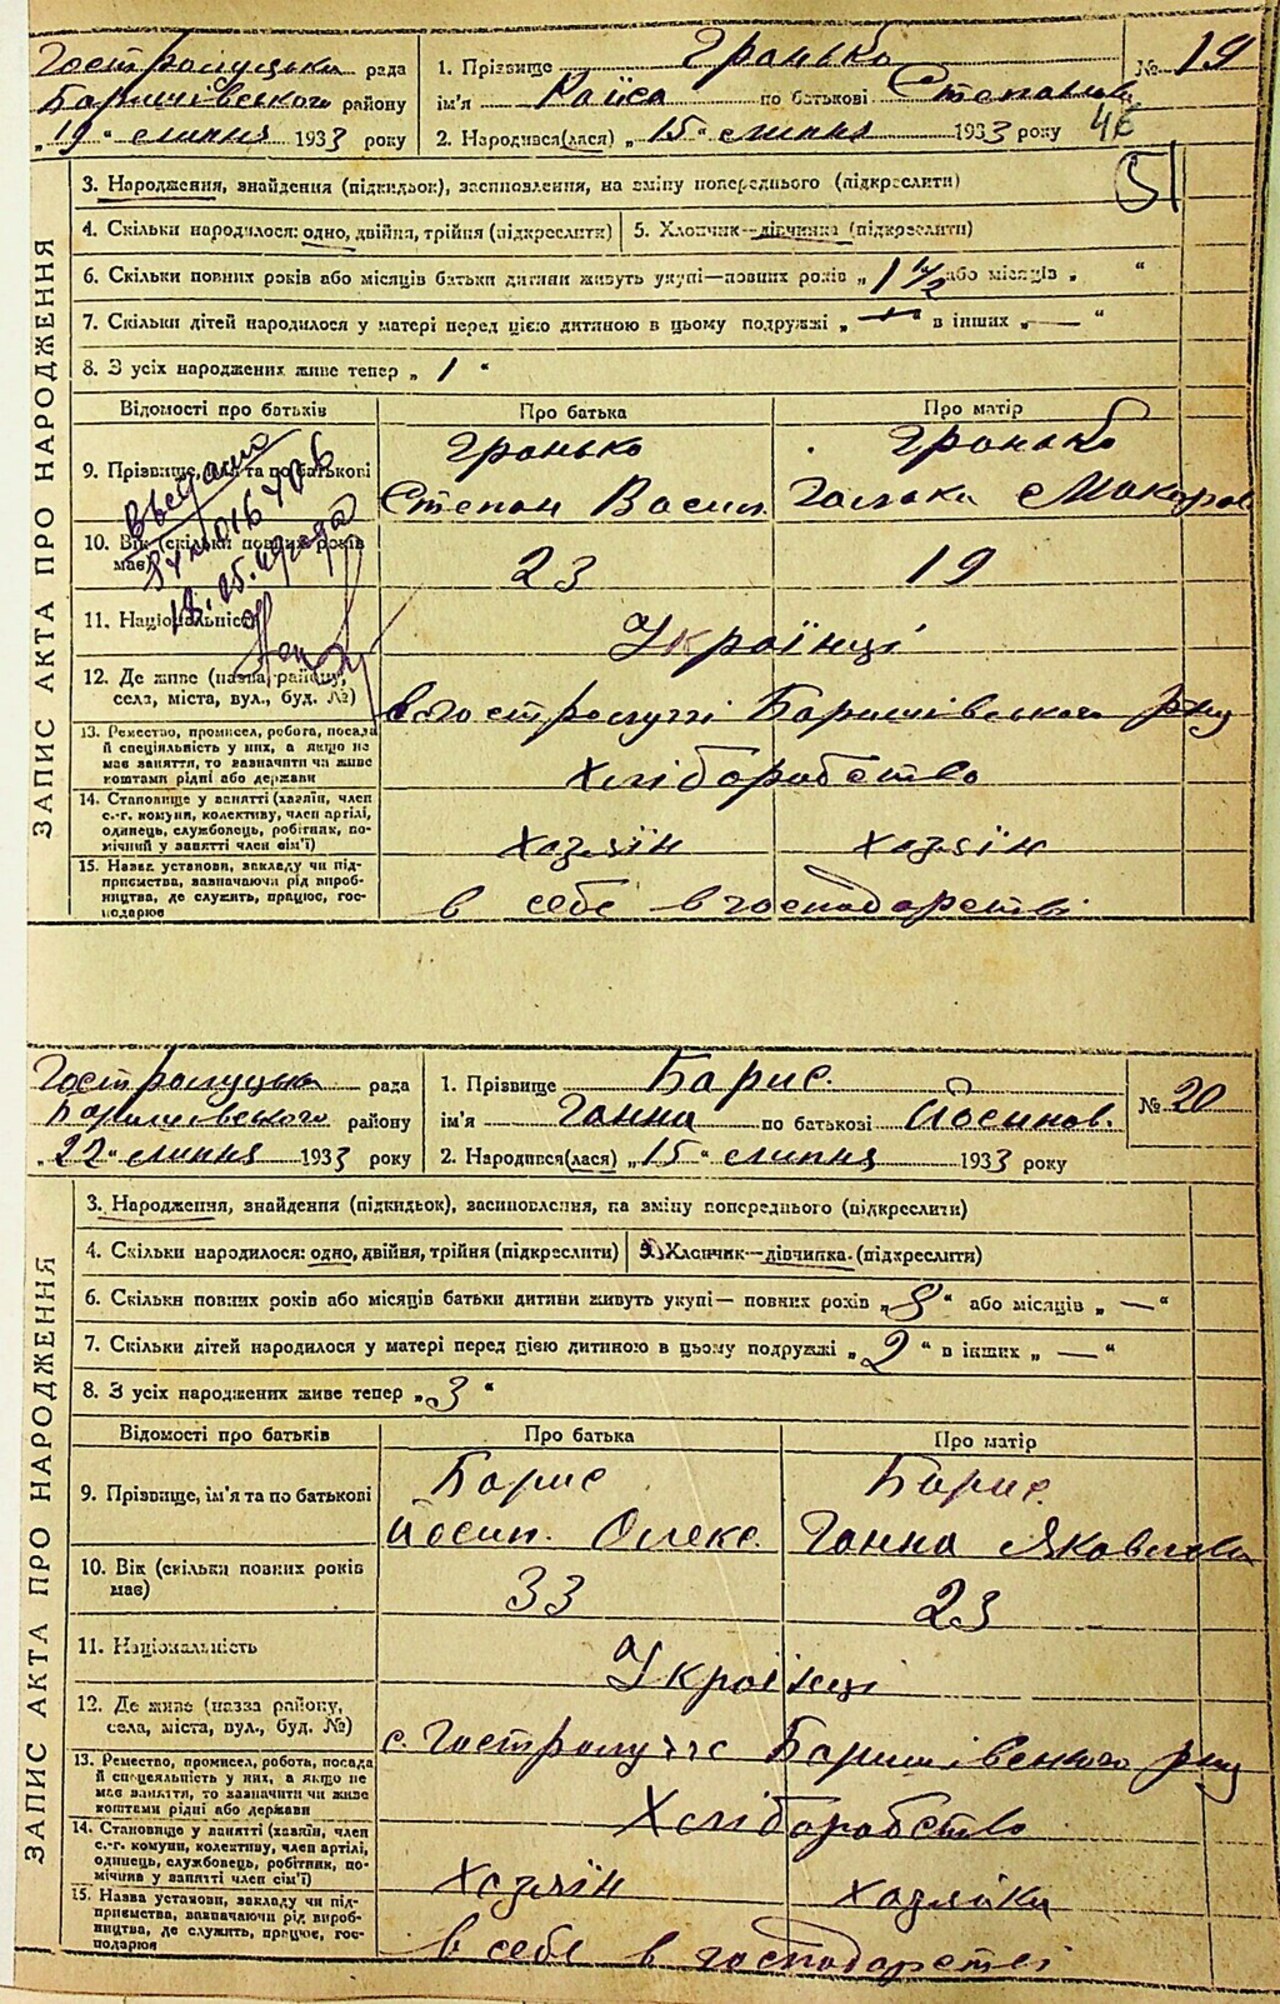 Гостролуцька рада
Баришівського району
„19“ липня 1933 року
1. Прізвище Гранько
ім'я Раїса по батькові Степанів.
2. Народився(лася) „15“ липня 1933 року
№ 19
46
51
ЗАПИС АКТА ПРО НАРОДЖЕННЯ
3. Народження, знайдення (підкидьок), засиновлення, на зміну попереднього (підкреслити)
4. Скільки народилося: одно, двійня, трійня (підкреслити) 5. Хлопчик—дівчинка (підкреслити)
6. Скільки повних років або місяців батьки дитини живуть укупі—повних років „1 ½ або місяців „ “
7. Скільки дітей народилося у матері перед цією дитиною в цьому подружжі „—“ в інших „—“
8. З усіх народжених живе тепер „1“
Відомості про батьків Про батька Про матір
9. Прізвище, ім'я та по батькові Гранько Гранько
Степан Васил. Макаров
10. Вік (скільки повних років має) 23 19
11. Національність Українці
12. Де живе (назва району,
села, міста, вул., буд. №) в Гостролуччі Баришівського р-ну
13. Ремество, промисел, робота, посада
й спеціяльність у них, а якщо не
має заняття, то зазначити чи живе
коштами рідні або держави Хліборобство
14. Становище у занятті (хазяїн, член
с.-г. комуни, колективу, член артілі,
одинець, службовець, робітник, по-
мічний у занятті член сім'ї) хазяїн хазяїн
15. Назва установи, закладу чи під-
приємства, зазначаючи рід вироб-
ництва, де служить, працює, гос-
подарює в себе в господарстві
Гостролуцька рада
Баришівського району
„22“ липня 1933 року
1. Прізвище Барис.
ім'я Ганна по батькові Йосипов.
2. Народився(лася) „15“ липня 1933 року
№ 20
ЗАПИС АКТА ПРО НАРОДЖЕННЯ
3. Народження, знайдення (підкидьок), засиновлення, на зміну попереднього (підкреслити)
4. Скільки народилося: одно, двійня, трійня (підкреслити) 5. Хлопчик—дівчинка. (підкреслити)
6. Скільки повних років або місяців батьки дитини живуть укупі— повних років „8“ або місяців „—“
7. Скільки дітей народилося у матері перед цією дитиною в цьому подружжі „2“ в інших „—“
8. З усіх народжених живе тепер „3“
Відомості про батьків Про батька Про матір
9. Прізвище, ім'я та по батькові Барис Барис.
Йосип. Олекс. Ганна Яковлева
10. Вік (скільки повних років
має) 33 23
11. Національність Українці
12. Де живе (назва району,
села, міста, вул., буд. №) с. Гостролуччє Баришівського р-ну
13. Ремество, промисел, робота, посада
й спецеяльність у них, а якщо не
має заняття, то зазначити чи живе
коштами рідні або держави Хліборобство
14. Становище у занятті (хазяїн, член
с.-г. комуни, колективу, член артілі,
одинець, службовець, робітник, по-
мічник у занятті член сім'ї) хазяїн хазяйка
15. Назва установи, закладу чи під-
приємства, зазначаючи рід вироб-
ництва, де служить, працює, гос-
подарює в себе в господарстві